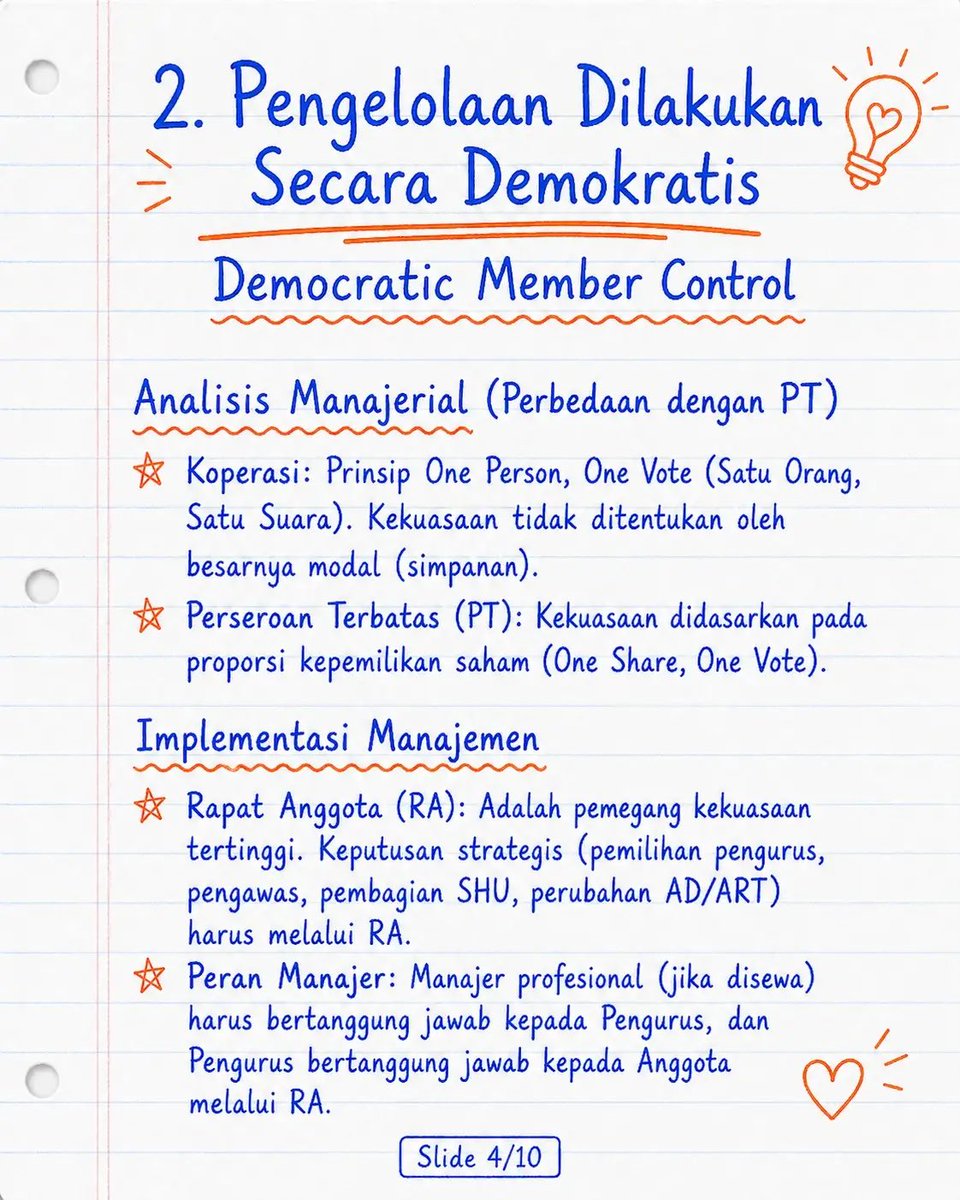 2. Pengelolaan Dilakukan
Secara Demokratis
Democratic Member Control
Analisis Manajerial (Perbedaan dengan PT)
Koperasi: Prinsip One Person, One Vote (Satu Orang,
Satu Suara). Kekuasaan tidak ditentukan oleh
besarnya modal (simpanan).
Perseroan Terbatas (PT): Kekuasaan didasarkan pada
proporsi kepemilikan saham (One Share, One Vote).
Implementasi Manajemen
Rapat Anggota (RA): Adalah pemegang kekuasaan
tertinggi. Keputusan strategis (pemilihan pengurus,
pengawas, pembagian SHU, perubahan AD/ART)
harus melalui RA.
Peran Manajer: Manajer profesional (jika disewa)
harus bertanggung jawab kepada Pengurus, dan
Pengurus bertanggung jawab kepada Anggota
melalui RA.
Slide 4/10